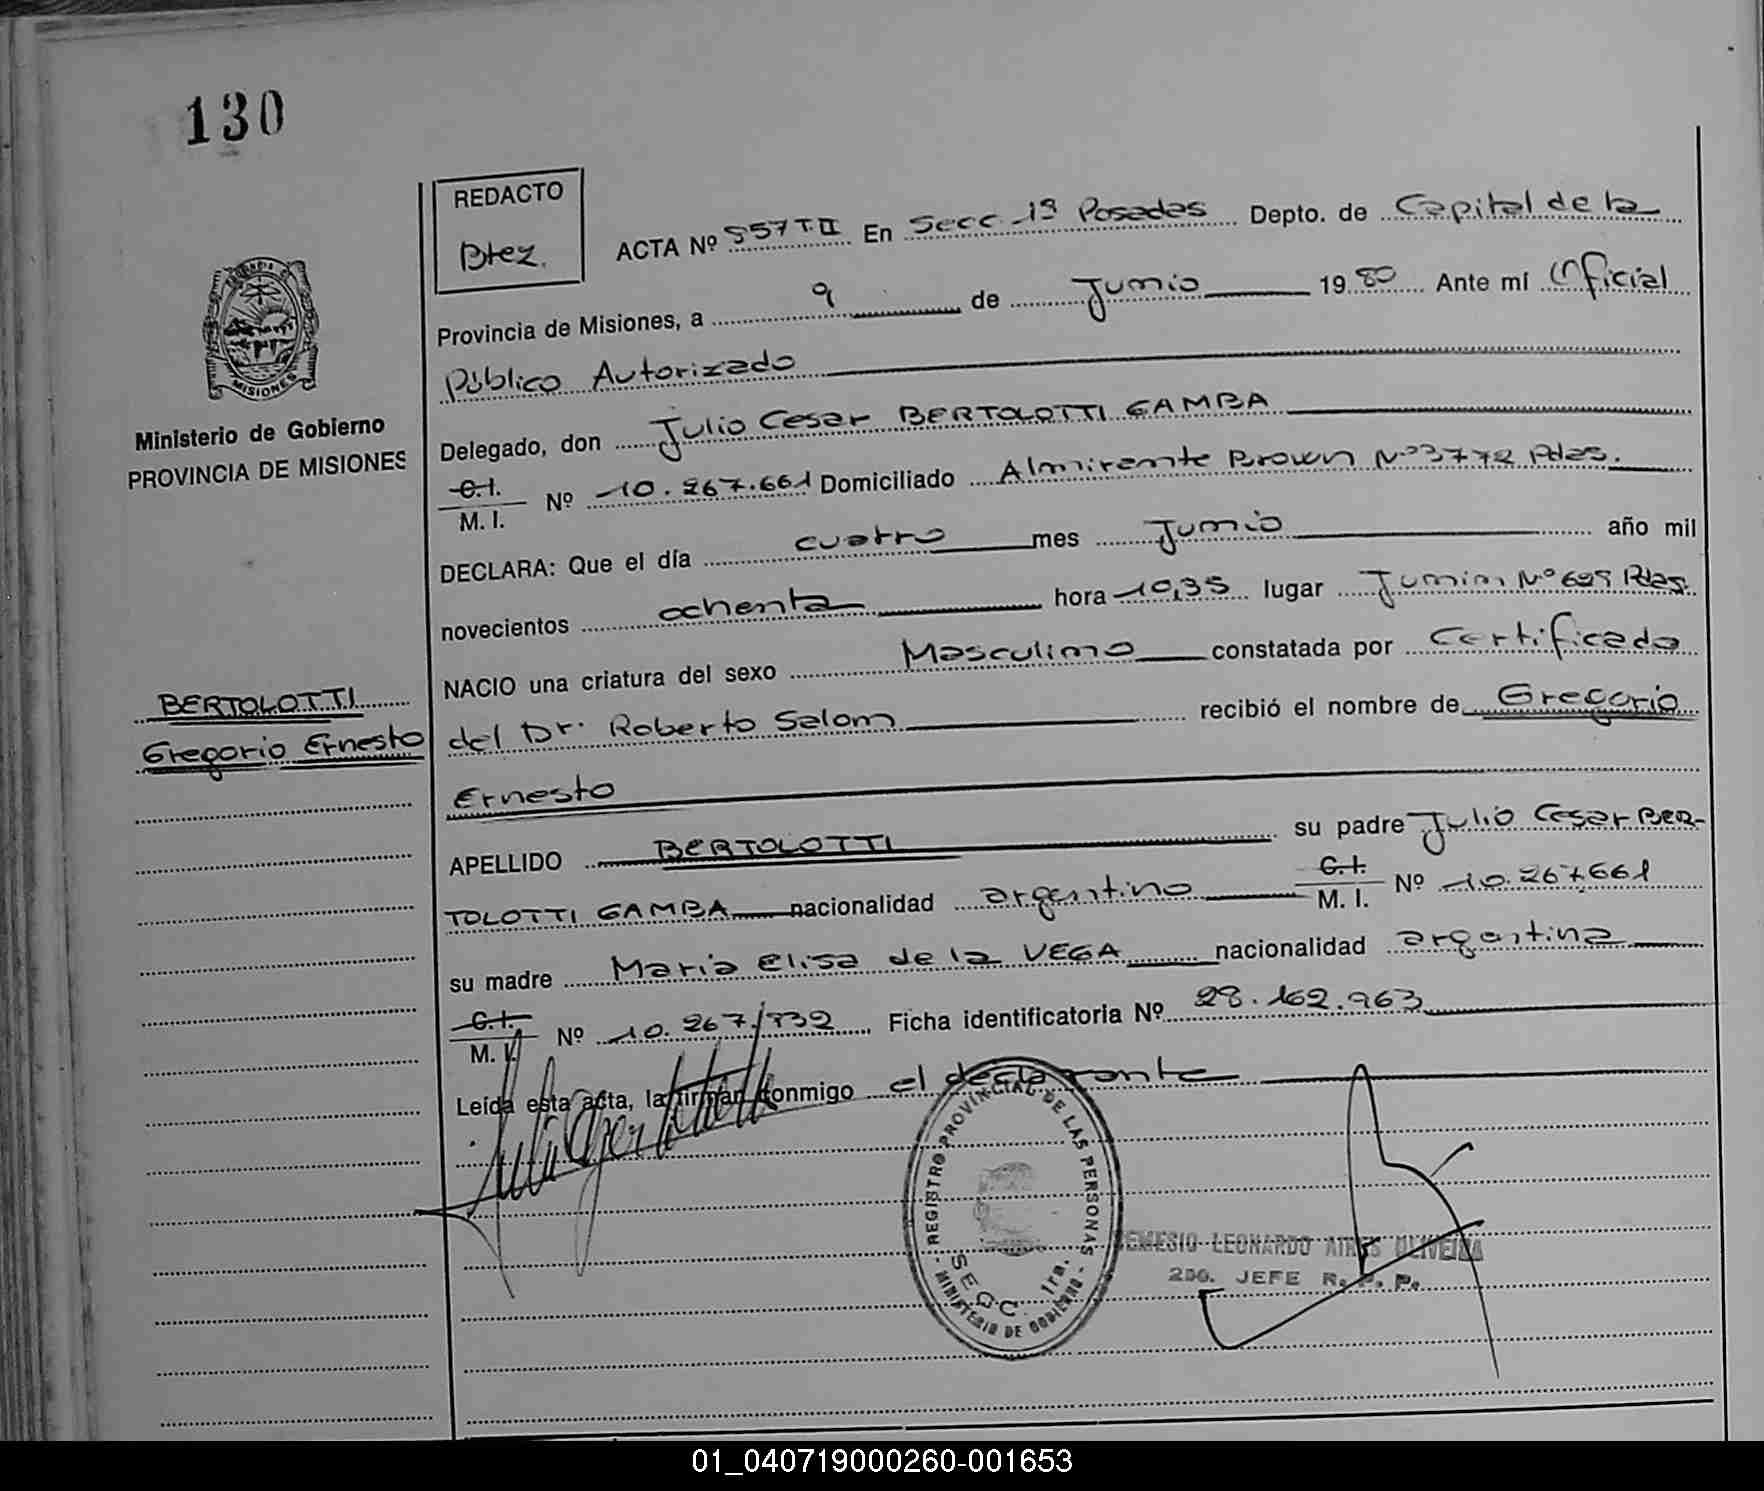 130
REDACTO
Btez.
ACTA Nº 557 T.II En Secc 1ª Posadas Depto. de Capital de la
Provincia de Misiones, a 9 de Junio 1980 Ante mí Oficial
Público Autorizado
Delegado, don Julio Cesar BERTOLOTTI GAMBA
C.I.
M. I. Nº 10.267.661 Domiciliado Almirante Brown Nº 3772 Pdas.
DECLARA: Que el día cuatro mes Junio año mil
novecientos ochenta hora 10,35 lugar Junin Nº 695 Pdas.
NACIO una criatura del sexo Masculino constatada por Certificado
del Dr. Roberto Salom recibió el nombre de Gregorio
Ernesto
APELLIDO BERTOLOTTI su padre Julio Cesar BER-
TOLOTTI GAMBA nacionalidad argentino C.I. M. I. Nº 10.267.661
su madre Maria Elisa de la VEGA nacionalidad argentina
C.I.
M. I. Nº 10.267.832 Ficha identificatoria Nº 28.162.963
Leída esta acta, la firman conmigo el declarante
Ministerio de Gobierno
PROVINCIA DE MISIONES
BERTOLOTTI
Gregorio Ernesto
MISIONES
REGISTRO PROVINCIAL DE LAS PERSONAS
SECC. 1ra.
MINISTERIO DE GOBIERNO
LEONARDO AIRES OLIVEIRA
2DO. JEFE R. P. P.
01_040719000260-001653